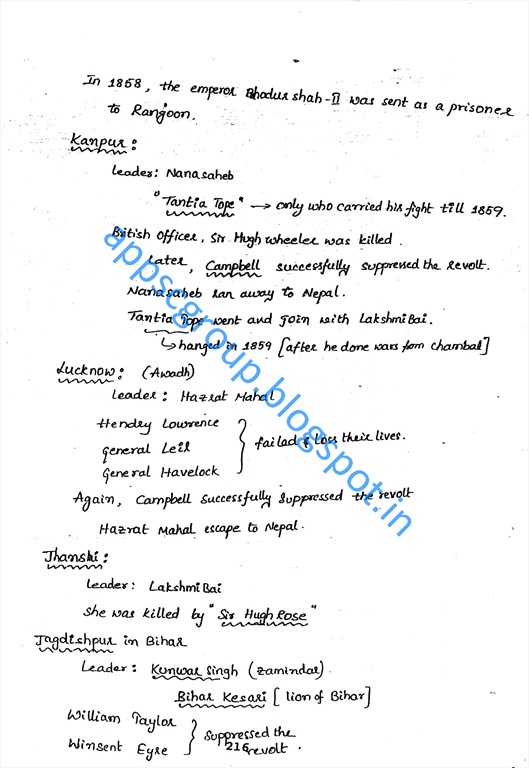 In 1858, the emperor Bhadur shah-II was sent as a prisoner
to Rangoon.
Kanpur:
Leader: Nanasaheb
"Tantia Tope" → only who carried his fight till 1859.
British officer, Sir Hugh wheeler was killed.
Later, Campbell successfully suppressed the revolt.
Nanasaheb ran away to Nepal.
Tantia Tope went and join with LakshmiBai.
↳ hanged in 1859 [after he done wars from chambal]
Lucknow: (Awadh)
Leader: Hazrat Mahal
Hendry Lowrence
General Leil
General Havelock
} failed & loss their lives.
Again, Campbell successfully suppressed the revolt
Hazrat Mahal escape to Nepal.
Jhanshi:
Leader: LakshmiBai
She was killed by "Sir Hugh Rose"
Jagdishpur in Bihar
Leader: Kunwar Singh (zamindar)
Bihar Kesari [lion of Bihar]
William Taylor
Winsent Eyre
} suppressed the
revolt.
216
appscgroup.blogspot.in